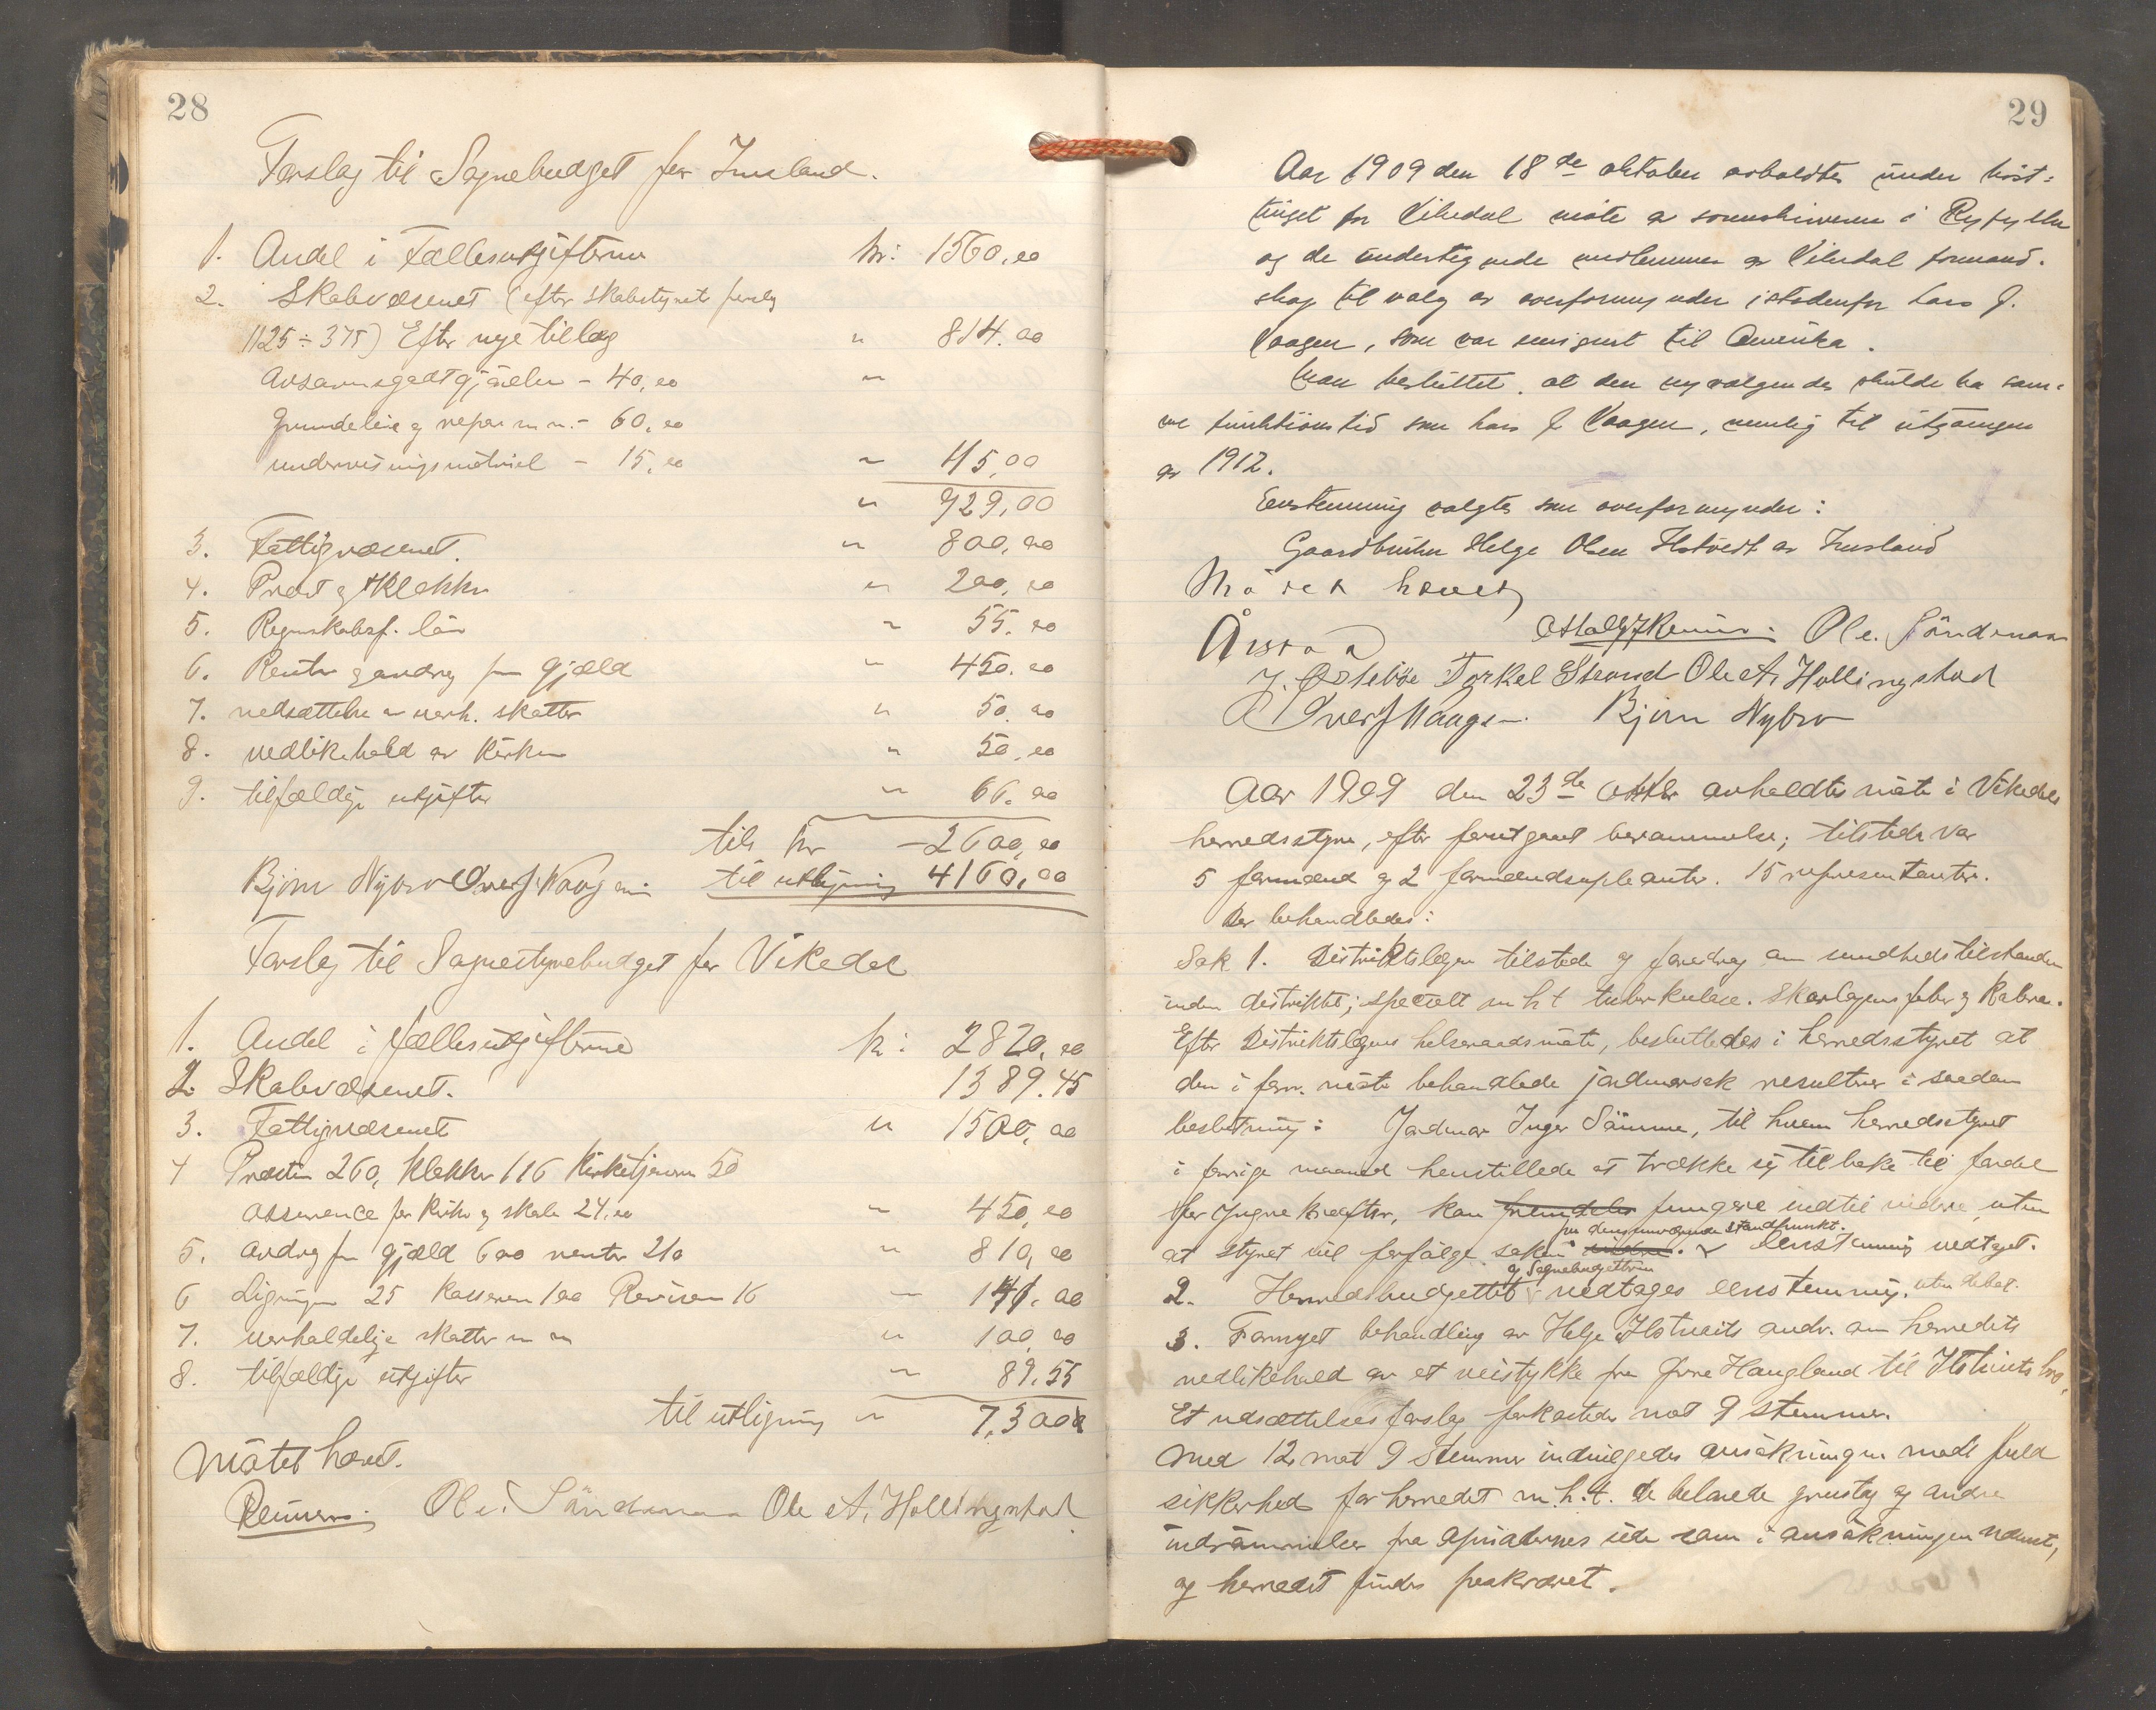 28
Forslag til Sognebudget for Imsland.
1. Andel i Fællesutgifterne kr: 1560,00
2. Skolevæsenet (efter skolestyrets forslag
1125 ÷ 375) Efter nye tillæg " 814.00
- 40,00 "
Grundeleie og repar m. m. - 60,00
undervisningsmateriel - 15,00 " 115,00
" 929,00
3. Fattigvæsenet. " 800,00
4. Præst og Klokker " 200,00
5. Regnskabsf. løn " 55.00
6. Renter og avdrag paa Gjæld " 450.00
7. nedsættelse av uerh. skatter " 50.00
8. vedlikehold av Kirken " 50,00
9. tilfældige utgifter " 66.00
tils kr - 2600,00
Bjørn Nybro Iver J. Vaagen. til utligning 4160,00
Forslag til Sognestyrebudget for Vikedal
1. Andel i fællesutgifterne kr: 2820,00
2. Skolevæsenet. 1389.45
3. Fattigvæsenet " 1500,00
4 Præsten 260, Klokker 116 Kirketjenern 50
Assurence for Kirke og skole 24,00 " 450,00
5. avdrag paa gjæld 600 renter 210 " 810,00
6 Ligningen 25 Kasseren 100 Revisor 16 " 141.00
7. uerholdelige skatter m m " 100,00
8. tilfældige utgifter " 89.55
til utligning " 7.300
Møtet hævet.
Reimers. Ole. Søndenaa Ole A. Hollingstad
29
Aar 1909 den 18de oktober avholdtes under høst-
tinget for Vikedal møte av sorenskriveren i Ryfylke
og de undertegnede medlemmer av Vikedal formand-
skap til valg av overformynder istedenfor Lars J.
Vaagen, som var emigrert til Amerika.
Man besluttet, at den nyvalgendes skulde ha sam-
me funktionstid som Lars J Vaagen, nemlig til utgangen
av 1912.
Eenstemmig valgtes som overformynder:
Gaardbruker Helge Olsen Ilstveit av Imsland
Møtet hævet
Årstad Reimers. Ole. Søndenaa
J. Østebøe Torkel Strand Ole A. Hollingstad
Iver J Vaagen. Bjørn Nybro
Aar 1909 den 23de Oktbr avholdtes møte i Vikedals
herredsstyre, efter forutgaaet berammelse; tilstede var
5 formænd og 2 formændsupleanter. 15 representanter.
Der behandledes:
Sak 1. Distriktslægen tilstede og foredrog om sundhedstilstanden
inden distriktet; specielt m h t tuberkulose. Skarlagensfeber og Kolera.
Efter Distriktslægens helseraadsmøte, besluttedes i herredsstyret at
den i forr. møte behandlede jordmorsak resulterer i saadan
beslutning: Jordmor Inger Sømme, til hvem herredsstyret
i forrige maaned henstillede at trække sig tilbake til fordel
for yngre kræfter, kan fremdeles fungere indtil videre, uten
fra dens nuværende standpunkt.
at styret vil forfølge saken videre. Eenstemmig vedtaget.
og Sognebudgetterne
2. Herredsbudgettet vedtages eenstemmig, uten debat.
3. Fornyet behandling av Helge Ilstveits andr. om herredets
vedlikehold av et veistykke fra Øvre Haugland til Ilstveits bro,
Et udsættelsesforslag forkastedes mot 9 stemmer.
Med 12 mot 9 stemmer indvilgedes ansøkningen mod full
sikkerhed for herredet m.h.t. de belovede grustag og andre
indrømmelser fra opsidernes side som i ansøkningen nævnt,
og herredet finder paakrævet.